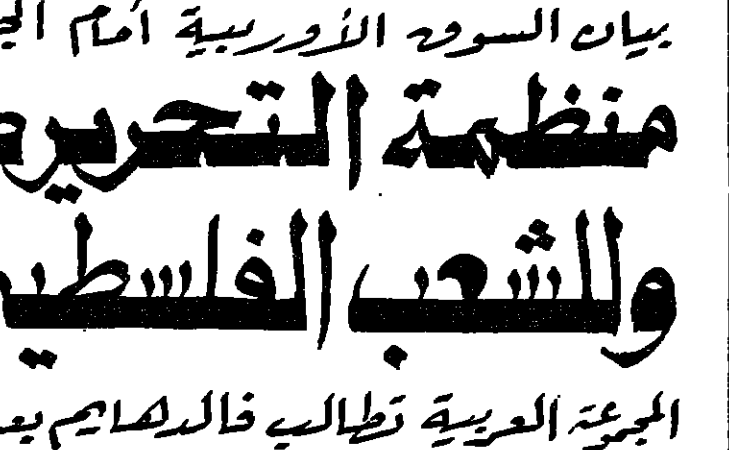 بيان السوق الأوربية أمام
منظمة التحرير
وللشعب
المجموعة العربية تطالب فالدهايم